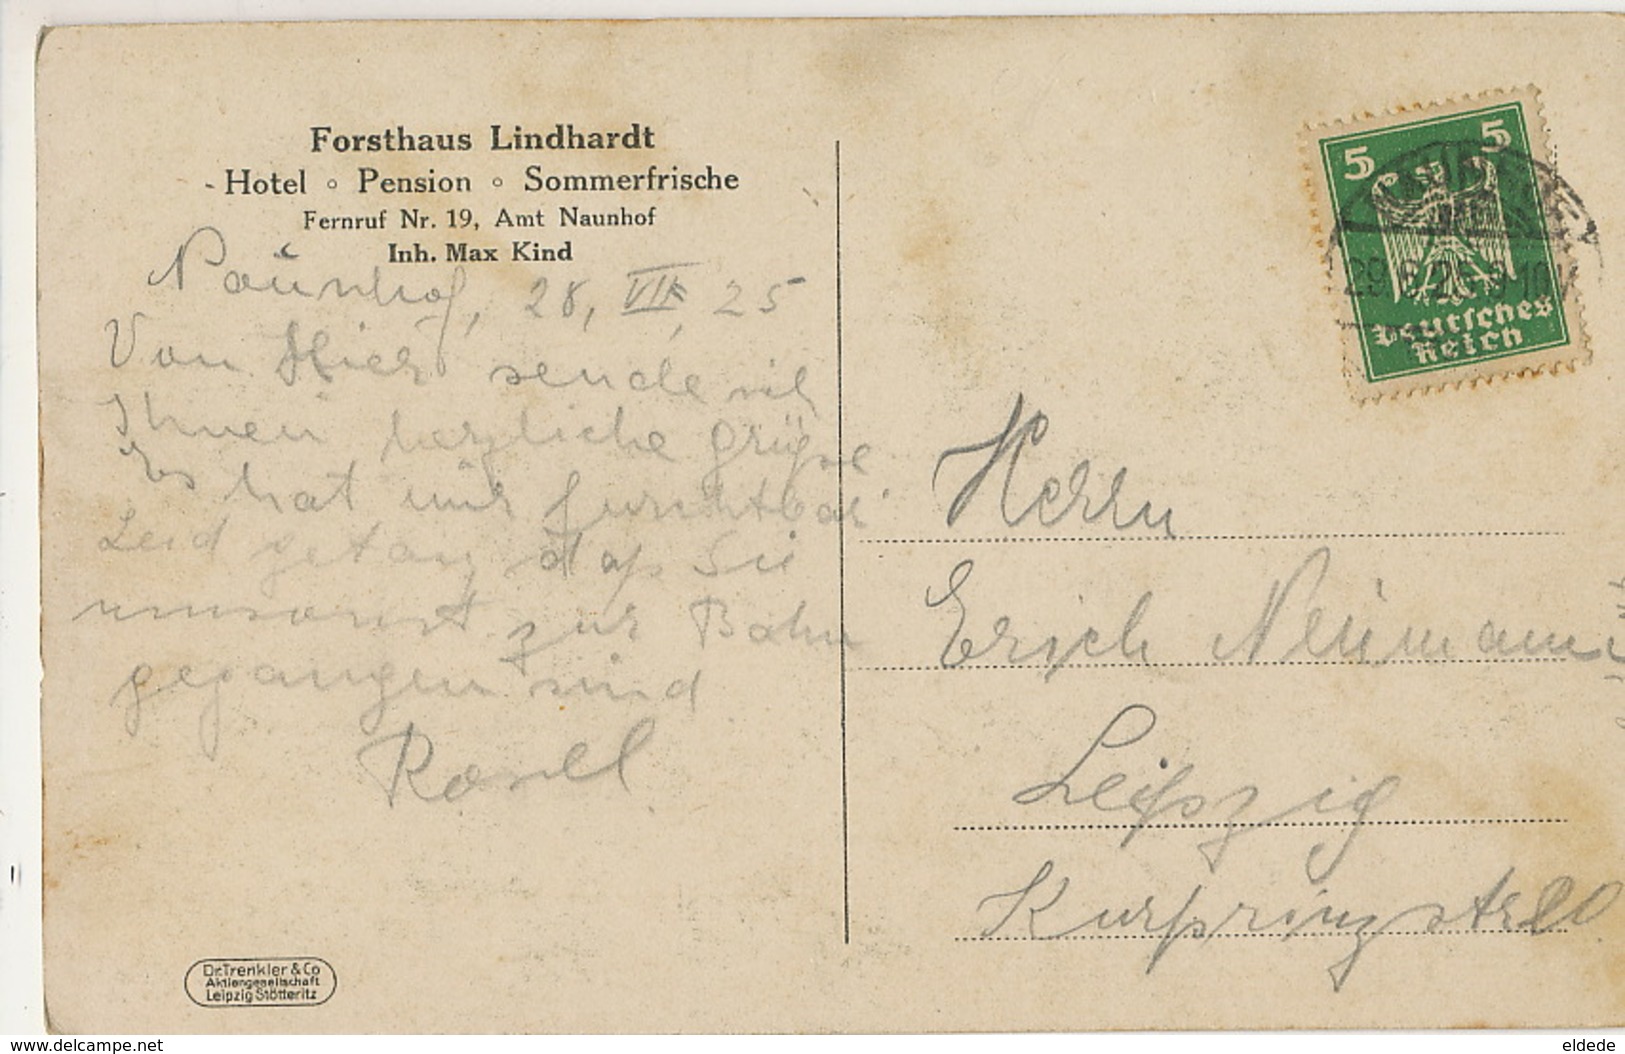 Forsthaus Lindhardt
- Hotel ◦ Pension ◦ Sommerfrische
Fernruf Nr. 19, Amt Naunhof
Inh. Max Kind
Naunhof, 28, VII, 25
Von Hier sende ich
Ihnen herzliche Grüße
Es hat mir furchtbar
Leid getan daß Sie
umsonst zur Bahn
gegangen sind
Rosell
Dr. Trenkler & Co
Aktiengesellschaft
Leipzig Stötteritz
5 5
Deutsches
Reich
Herrn
Erich Neumann
Leipzig
Kurprinzstr
delcampe.net
eldede